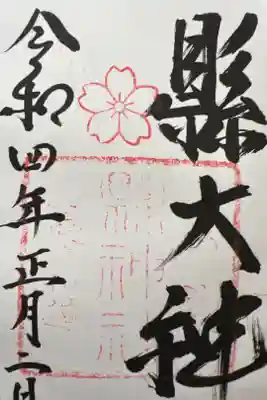 縣大神
令和四年正月二日